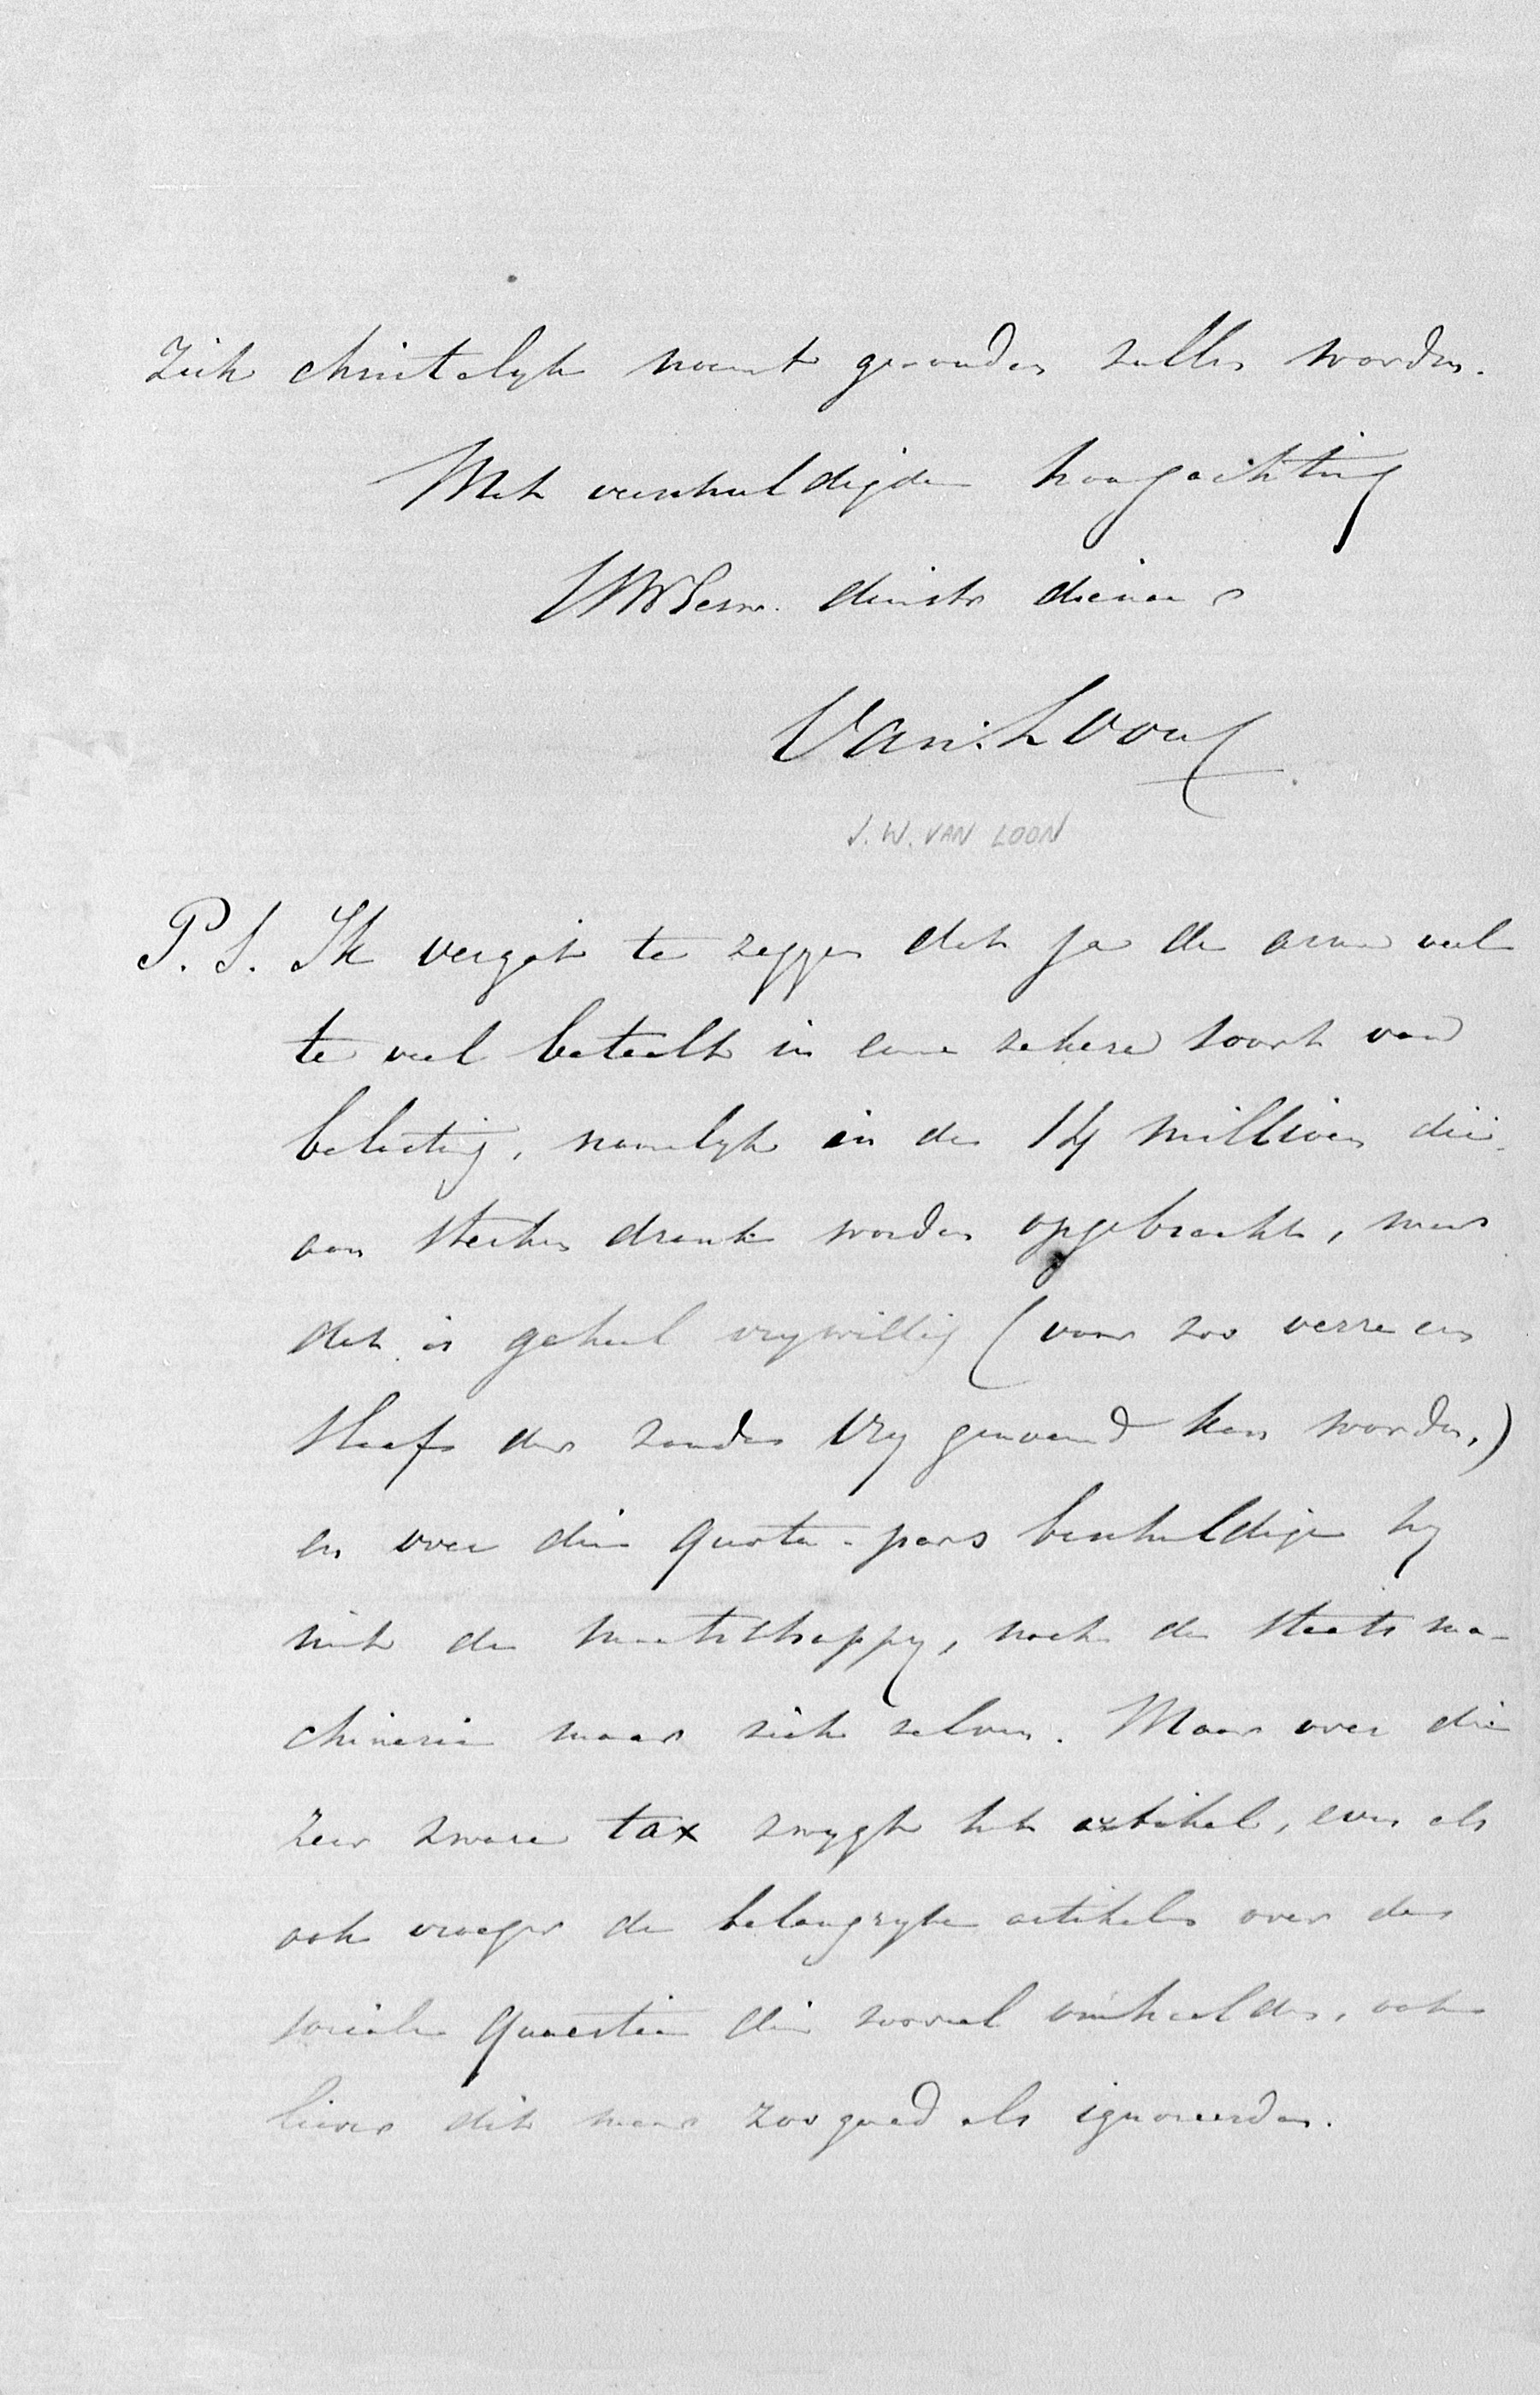 Zich christelyk noemt gevonden zullen worden.
Met verschuldigde hoogachting
UWEdw. dienstw dienaar
Van Loon
J. W. VAN LOON
P. S. Ik vergat te zeggen dat ja de arme veel
te veel betaalt in eene zekere soort van
belasting, namelyk in de 14 millioen die
aan sterken drank worden opgebracht, maar
dat is geheel vrywillig (voor zoo verre een
slaaf der zonde vry genoemd kan worden.)
en over die quota-pars beschuldige hy
niet de maatschappy, noch de staats ma-
chinerie maar zich zelven. Maar over die
zeer zware tax zwygt het artikel, even als
ook vroeger de belangryke artikelen over de
sociale quaestie die zooveel inhielden, ook
liever dit maar zoo goed als ignoreerden.